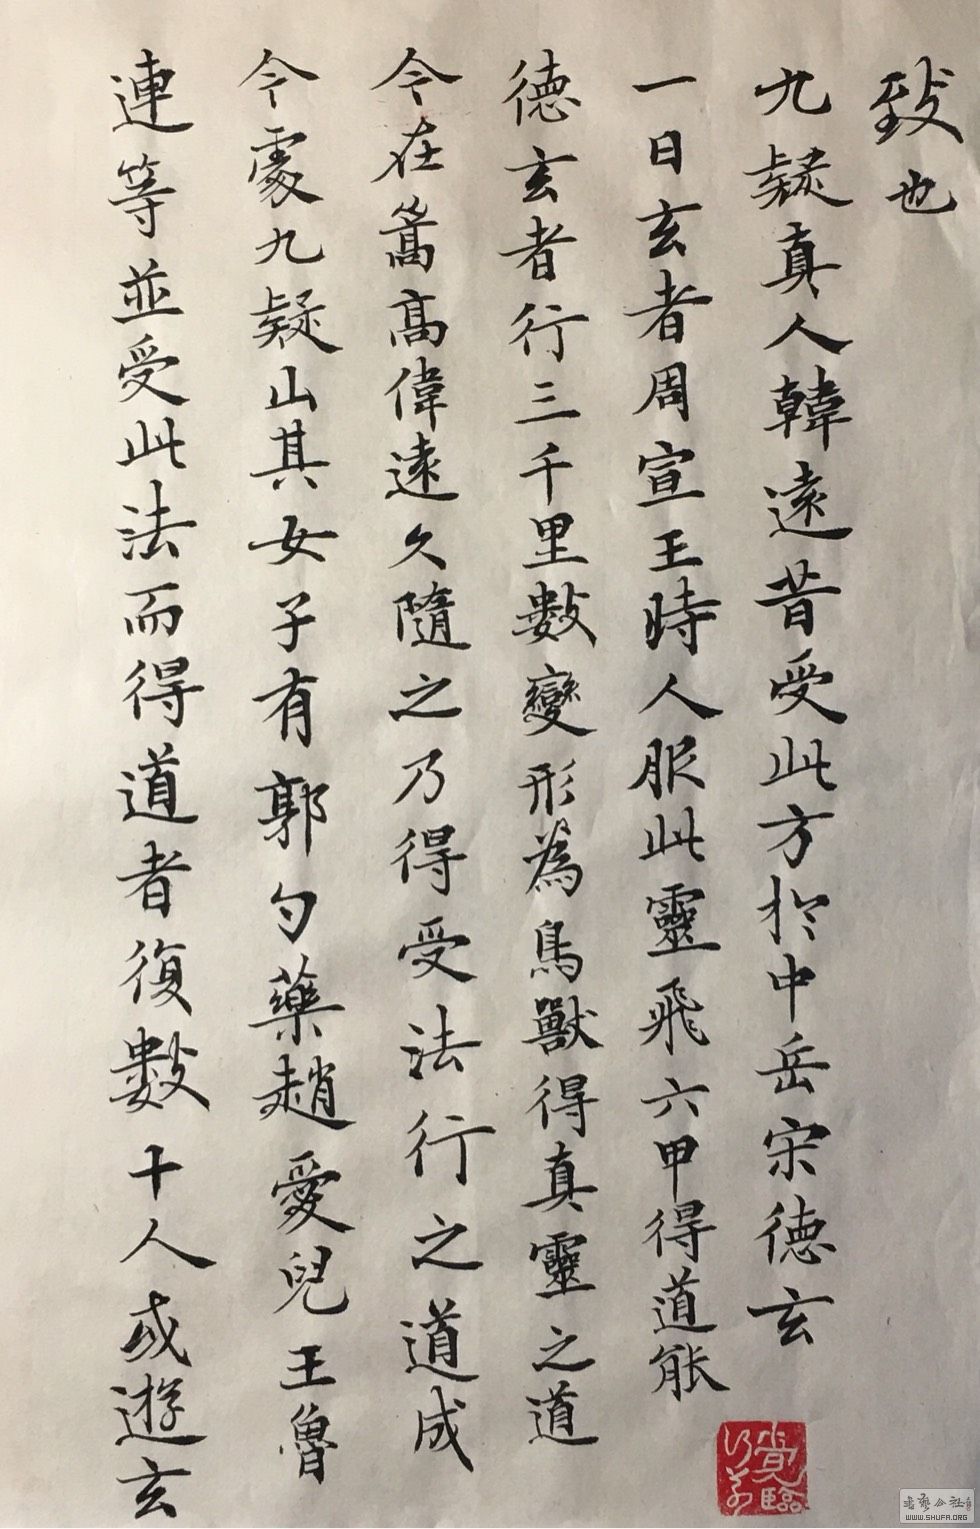 致也
九疑真人韓遠昔受此方於中岳宋德玄
一日玄者周宣王時人服此靈飛六甲得道能
德玄者行三千里數變形為鳥獸得真靈之道
今在嵩高偉遠久隨之乃得受法行之道成
今處九疑山其女子有郭勺藥趙愛兒王魯
連等並受此法而得道者復數十人或遊玄
書藝公社
WWW.SHUFA.ORG